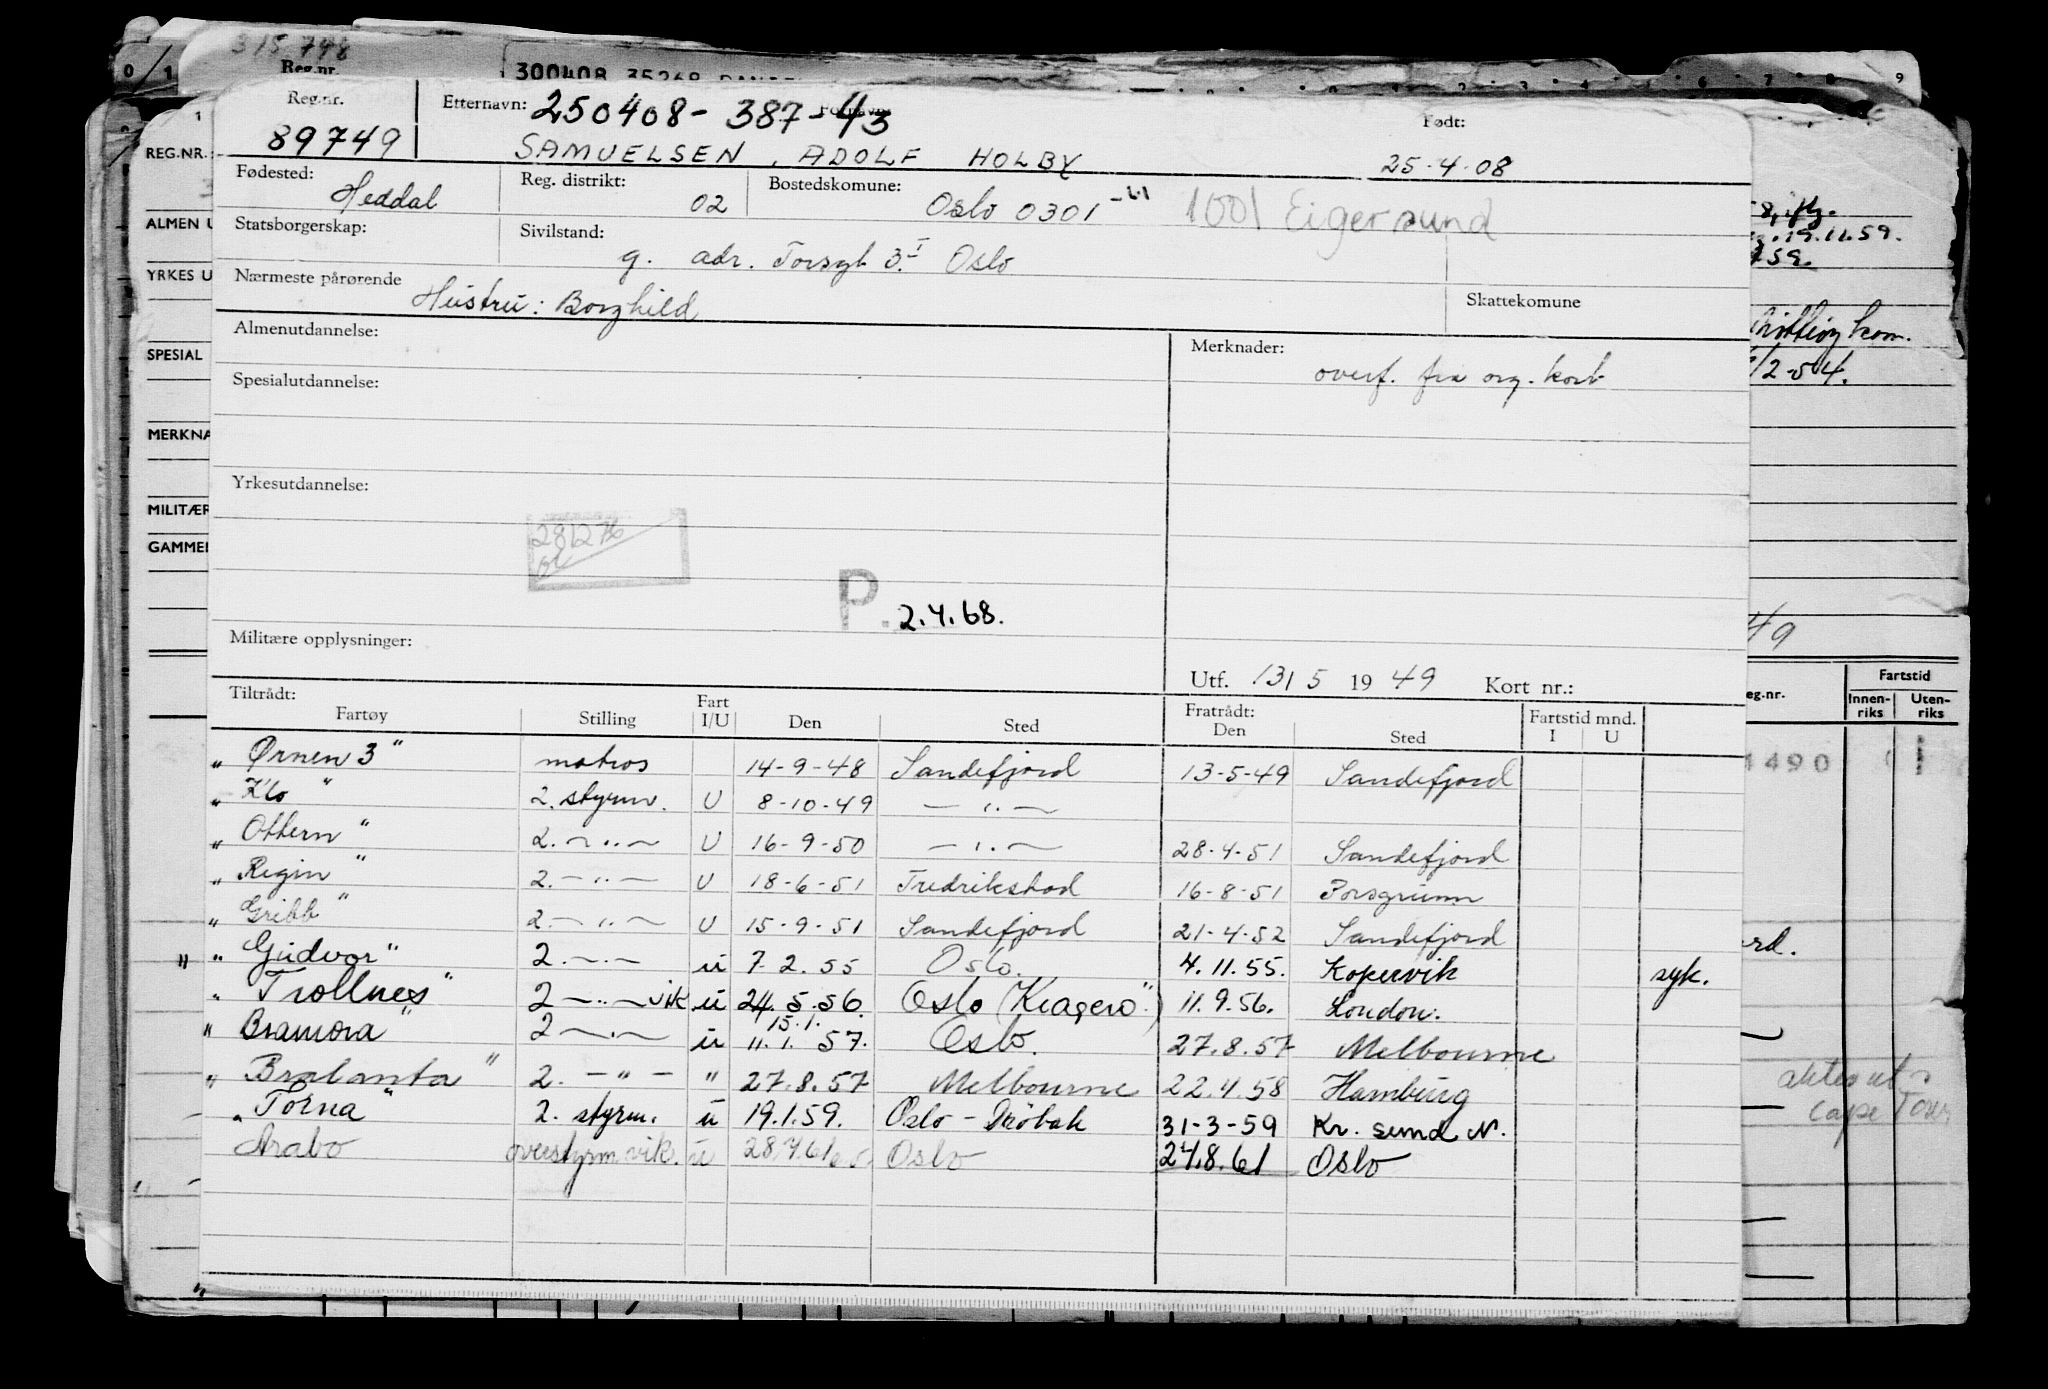 315.748
Reg.nr.
300408 35269
0 1
9
Reg.nr. Etternavn: 250408-387-43 Født:
89749 SAMUELSEN, ADOLF HOLBY 25-4-08
REG.NR.
Fødested: Heddal Reg. distrikt: 02 Bostedskomune: Oslo 0301 1001 Eigersund
ALMEN U
Statsborgerskap: Sivilstand: g. adr. Torsgt 3 I Oslo
19.11.59.
YRKES U
Nærmeste pårørende Hustru: Borghild Skattekomune
Almenutdannelse: Merknader: overf. fra org. kort
SPESIAL
Spesialutdannelse:
12-54.
MERKNA
Yrkesutdannelse:
MILITÆR
281276
GAMMEL
P. 2.4.68.
Militære opplysninger:
49
Utf. 13/5 1949 Kort nr.:
Tiltrådt: Fratrådt:
Fartøy Stilling Fart I/U Den Sted Den Sted Fartstid mnd. I U
eg.nr. Fartstid Innen-riks Uten-riks
„Ørnen 3" matros 14-9-48 Sandefjord 13-5-49 Sandefjord
1490
„Klo" 2. styrm. U 8-10-49 —"—
„Ottern" 2. —"— U 16-9-50 —"— 28-4-51 Sandefjord
„Regin" 2. —"— U 18-6-51 Fredrikstad 16-8-51 Porsgrunn
„Gribb" 2. —"— U 15-9-51 Sandefjord 21-4-52 Sandefjord
„Gudvor" 2. —"— u 7.2.55 Oslo. 4.11.55. Kopervik syk.
rd.
„Trollnes" 2 —"— vik u 24.5.56. Oslo (Kragerø") 11.9.56. London.
15.1.
„Bramora" 2 —"— u 11.1.57. Oslo. 27.8.57 Melbourne
„Bralanta" 2. —"— " 27.8.57 Melbourne 22.4.58 Hamburg
„Torna" 2. styrm. u 19.1.59. Oslo - Drøbak 31-3-59 Kr. sund N.
Cape Town
Arabo overstyrm vik. u 28.7.61 Oslo 24.8.61 Oslo